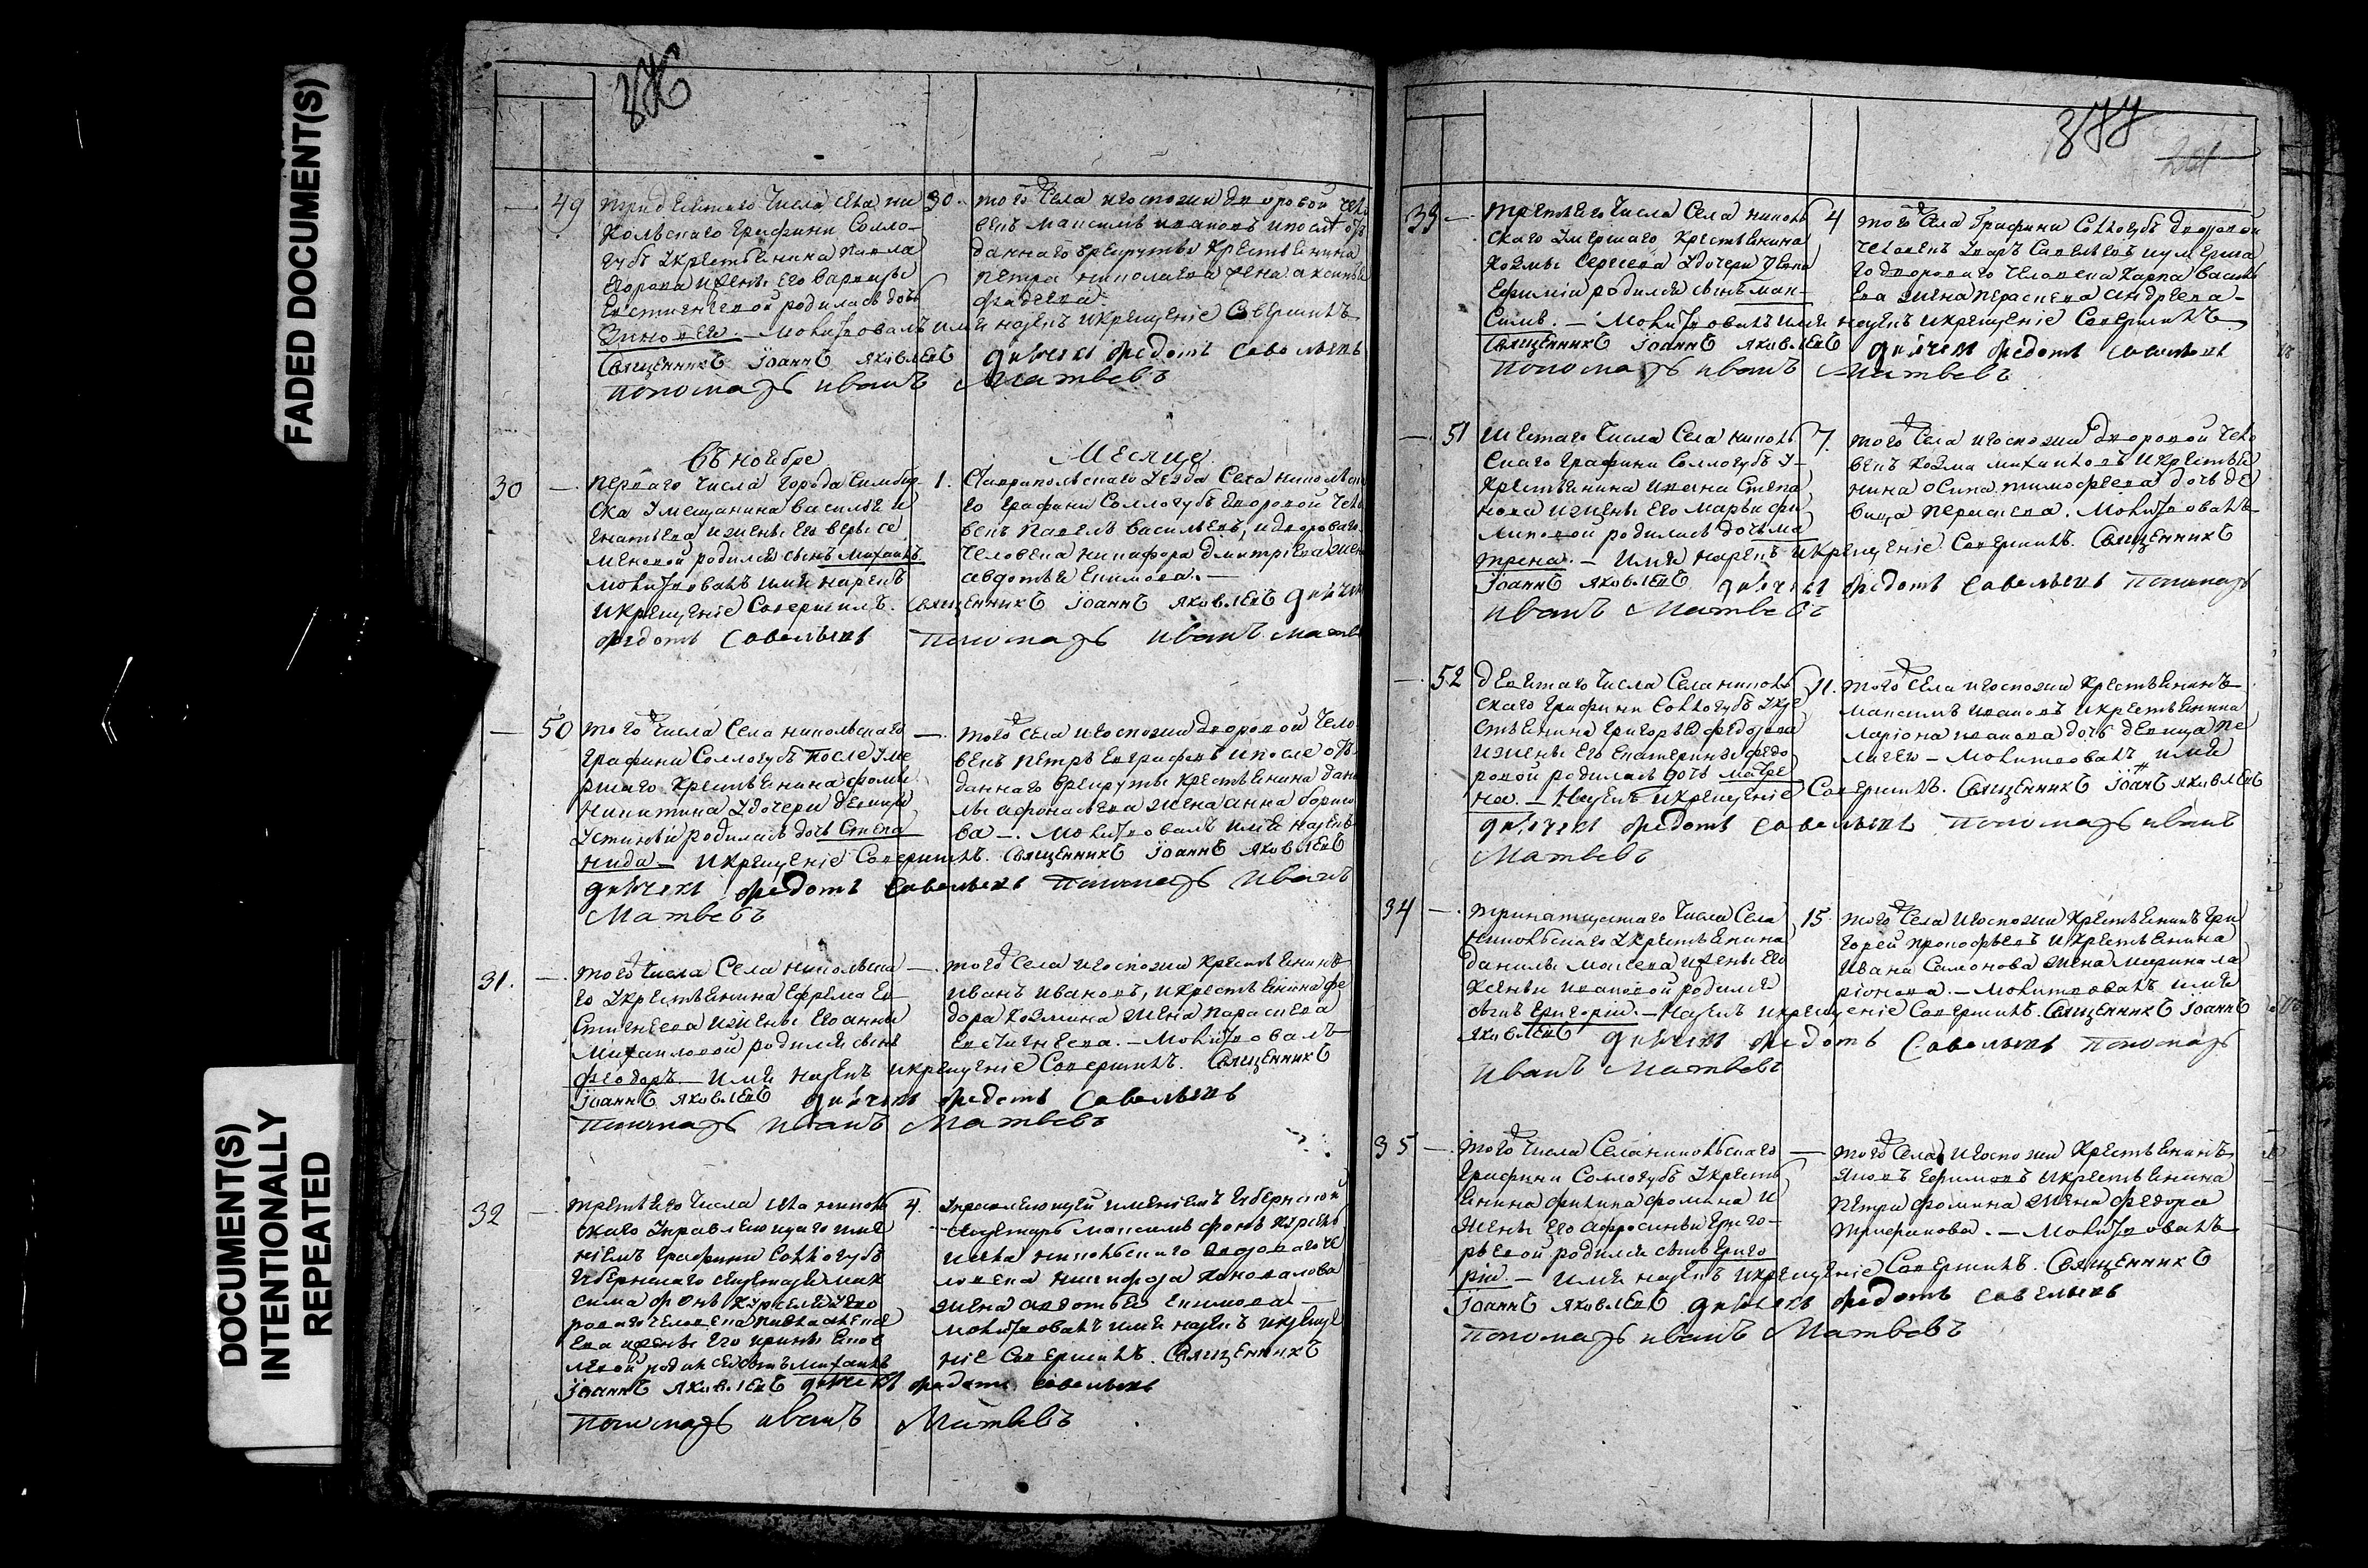 FADED DOCUMENT(S)
DOCUMENT(S)
INTENTIONALLY
REPEATED
49
числа села ни
кольскаго графини Солло-
губъ у крестьянина Павла
Егорова и жены его
родилась дочь
30.
того села и госпожи дворовой чело
векъ Максимъ Ивановъ и после от
даннаго в рекруты крестьянина
Петра Николаева жена Аксинья
Фадеева
Молитвовалъ имя нарекъ и крещение Совершилъ
Священникъ Iоаннъ Яковлевъ дьячекъ Федотъ Савельевъ
Пономарь Иванъ Матвевъ
въ ноябре Месяце
30 —
перваго числа города Симбир
ска у мещанина Василья
и жены его Веры Се
меновой родился сынъ Михаилъ.
молитвовалъ имя нарекъ
и крещение Совершилъ. Священникъ Iоаннъ Яковлевъ дьячекъ
Федотъ Савельевъ Пономарь Иванъ Матве
1.
Ставропольскаго уезда Села Никольска
го графини Соллогубъ дворовой чело
векъ Павелъ Васильевъ, и двороваго
человека Никифора Дмитриева жена
Авдотья Екимова. —
— 50
того числа Села Никольскаго
графини Соллогубъ после уме
ршаго крестьянина Фомы
Никитина у дочери девицы
Устиньи родилась дочь Степа
нида — и крещение Совершилъ. Священникъ Iоаннъ Яковлевъ
дьячекъ Федотъ Савельевъ Пономарь Иванъ
Матвевъ
—
того села и госпожи дворовой чело
векъ Петръ Евграфовъ и после от
даннаго в рекруты крестьянина Дани
лы Афонасьева жена Анна Борисо
ва —. Молитвовалъ имя нарекъ
31. —
того числа Села Никольска
го у крестьянина Ефрема Ев
стигнеева и жены его Анны
Михайловой родился сынъ
Феодоръ. — имя нарекъ и крещение Совершилъ. Священникъ
Iоаннъ Яковлевъ дьячекъ Федотъ Савельевъ
Пономарь Иванъ Матвевъ
—
того села и госпожи крестьянинъ
Иванъ Ивановъ, и крестьянина Фе
дора Козмина жена Парасковья
Евстигнеева. — Молитвовалъ
32 —
третьего числа села Николь
скаго управляющаго име
ниемъ графини Соллогубъ
губернскаго секретаря Мак
сима фонъ
роваго человека
и жены его Ирины
родился сынъ Михаилъ
Iоаннъ Яковлевъ дьячекъ Федотъ Савельевъ
Пономарь Иванъ Матвевъ
4.
управляющей имениемъ губернской
секретарь Максимъ фонъ
села Никольскаго двороваго че
ловека Никифора Коновалова
жена Авдотья Екимова —
молитвовалъ имя нарекъ и креще
ние Совершилъ. Священникъ
33 —
третьего числа Села Николь
скаго умершаго крестьянина
Козмы Сергеева у дочери
Ефимии родился сынъ Мак-
симъ. — Молитвовалъ имя нарекъ и крещение Совершилъ
Священникъ Iоаннъ Яковлевъ дьячекъ Федотъ Савельевъ
Пономарь Иванъ Матвевъ
4
того села графини Соллогубъ дворовой
человекъ Савельевъ и умерша
го двороваго человека Карпа Василь
ева жена Параскева Андреева —
— 51
шестаго числа Села Николь
скаго графини Соллогубъ у
крестьянина Ивана Степа
нова и жены его Марьи Фи
липовой родилась дочь Ма
трена. — имя нарекъ и крещение Совершилъ. Священникъ
Iоаннъ Яковлевъ дьячекъ Федотъ Савельевъ Пономарь
Иванъ Матвевъ
7.
того села и госпожи дворовой чело
векъ Козма Михайловъ и крестья
нина Осипа Тимофеева дочь де
вица Параскева. Молитвовалъ
— 52
девятаго числа Села Николь
скаго графини Соллогубъ у кре
стьянина Григорья Федорова
и жены его Екатерины Федо
ровой родилась дочь Матре
на. — Нарекъ и крещение Совершилъ. Священникъ Iоаннъ Яковлевъ
дьячекъ Федотъ Савельевъ Пономарь Иванъ
Матвевъ
11.
того села и госпожи крестьянинъ
Максимъ Ивановъ и крестьянина
Лариона Иванова дочь девица Пе
лагея — Молитвовалъ имя
34 —
числа Села
Никольскаго у крестьянина
Данилы Моисеева и жены его
Ксеньи Ивановой родился
сынъ Григорiй. — Нарекъ и крещение Совершилъ. Священникъ Iоаннъ
Яковлевъ дьячекъ Федотъ Савельевъ Пономарь
Иванъ Матвевъ
15.
того села и госпожи крестьянинъ Гри
горей Прокофьевъ и крестьянина
Ивана Самонова жена Марина Ла
рiонова. — Молитвовалъ имя
35 —
того числа Села Никольскаго
графини Соллогубъ у кресть
янина Филипа Фомина и
жены его Афросиньи Григо-
рьевой родился сынъ Григо
рiй. — имя нарекъ и крещение Совершилъ. Священникъ
Iоаннъ Яковлевъ дьячекъ Федотъ Савельевъ
Пономарь Иванъ Матвевъ
—
того села и госпожи крестьянинъ
Яковъ Ефимовъ и крестьянина
Петра Фомина жена Федора
Трифонова. — Молитвовалъ